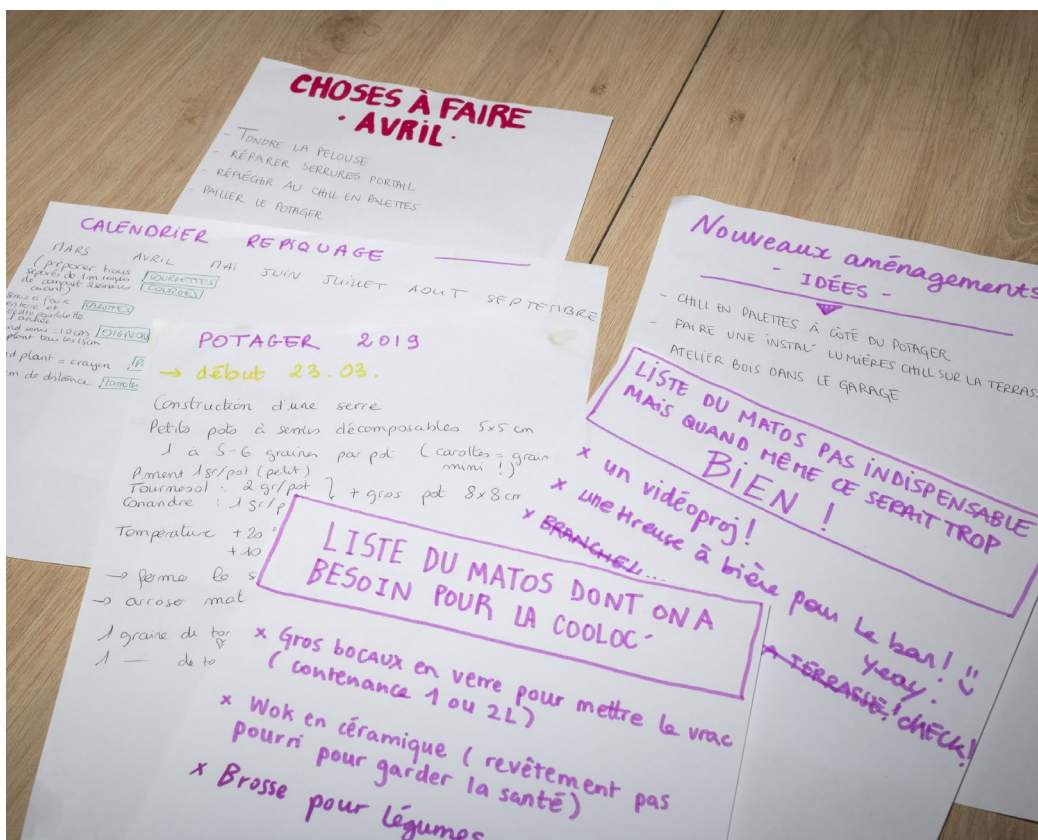 CHOSES À FAIRE
· AVRIL ·
- TONDRE LA PELOUSE
- RÉPARER SERRURES PORTAIL
- RÉFLÉCHIR AU CHILL EN PALETTES
- PAILLER LE POTAGER
CALENDRIER REPIQUAGE
MARS AVRIL MAI JUIN JUILLET AOUT SEPTEMBRE
(préparer trous
séparés de 1m
de compost 2 semaines
avant)
COURGETTES
COURGES
CAROTTES
= 10 cm OIGNON
plant tous les 15cm
plant = crayon
cm de distance
POTAGER 2019
→ début 23.03.
Construction d'une serre
Petits pots à semis décomposables 5x5 cm
1 à 5-6 graines par pot (carottes = grain
mini !)
Piment 1gr/pot (petit)
Tournesol : 2 gr/pot + gros pot 8x8cm
Coriandre : 1 gr/p
Température +20
+10
→ ferme la s
→ arroser mat
1 graine de
1 — de to
Nouveaux aménagements
- IDÉES -
- CHILL EN PALETTES À CÔTÉ DU POTAGER
- FAIRE UNE INSTAL' LUMIÈRES CHILL SUR LA TERRASS
ATELIER BOIS DANS LE GARAGE
LISTE DU MATOS PAS INDISPENSABLE
MAIS QUAND MÊME CE SERAIT TROP
BIEN !
x un vidéoproj !
x une tireuse à bière pour le bar !
yeay.
x BRANCHEL...
A TERRASSE! CHECK!
LISTE DU MATOS DONT ON A
BESOIN POUR LA COOLOC'
x Gros bocaux en verre pour mettre le vrac
( contenance 1 ou 2L )
x Wok en céramique ( revêtement pas
pourri pour garder la santé )
x Brosse pour légumes